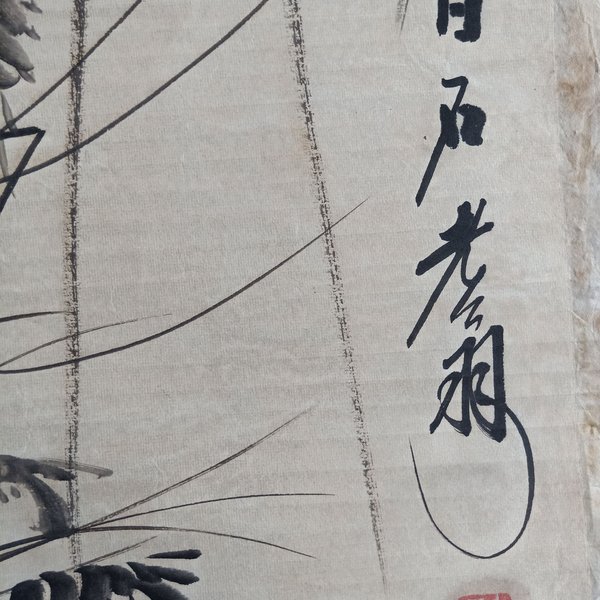 石老翁